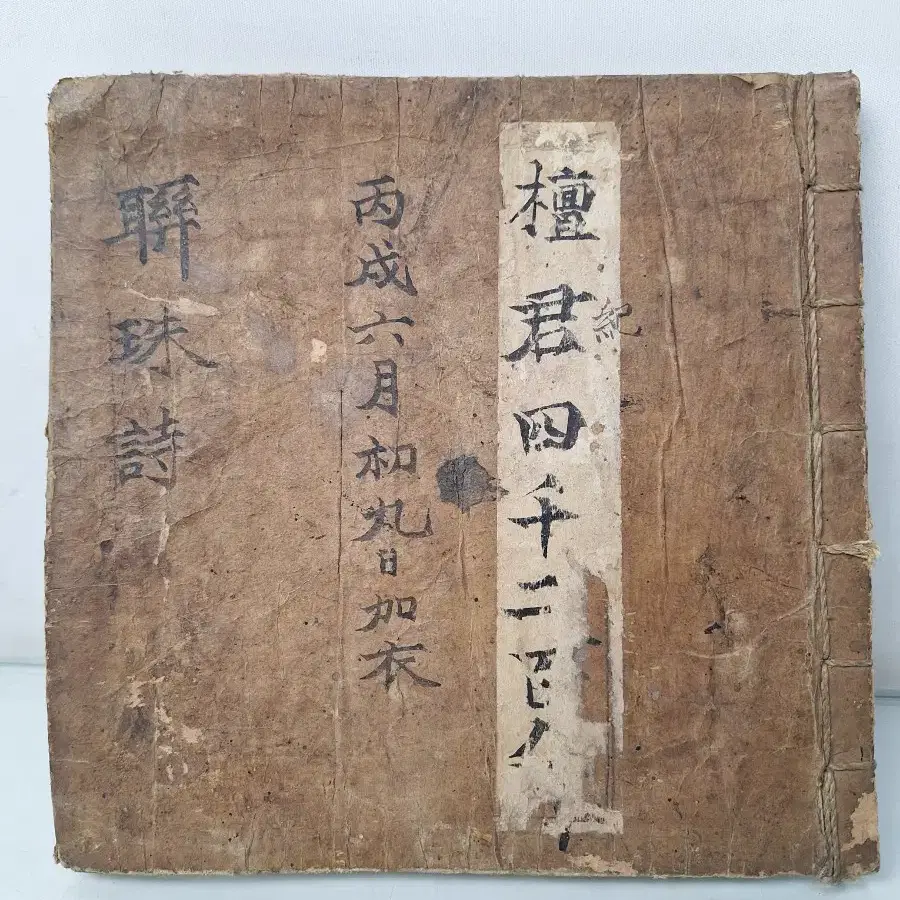 檀君紀四千二百
丙戌六月初九日加衣
聯珠詩